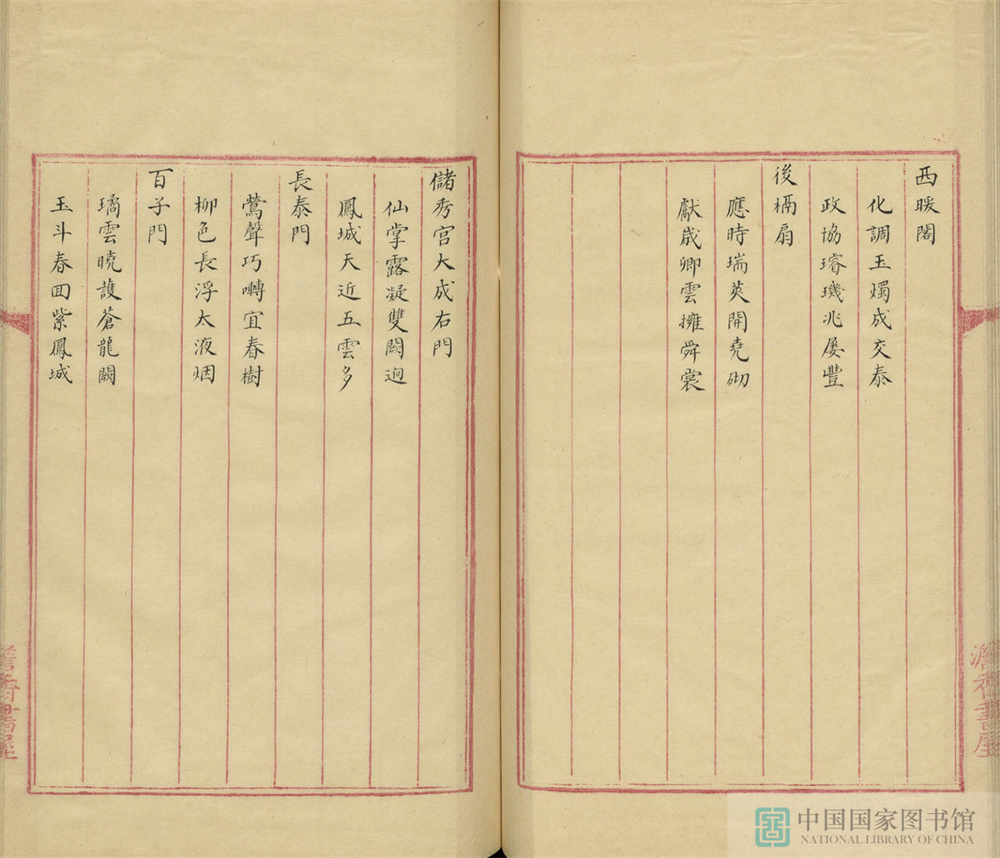 西暖閣
化調玉燭成交泰
政協璿璣兆屡豐
後槅扇
應時瑞莢開堯砌
獻歳卿雲擁舜裳
儲秀宫大成右門
仙掌露凝雙闕迥
鳳城天近五雲多
長泰門
鶯聲巧囀宜春樹
柳色長浮太液烟
百子門
璚雲曉護蒼龍闕
玉斗春回紫鳳城
澹香書屋
澹香書屋
中国国家图书馆
NATIONAL LIBRARY OF CHINA